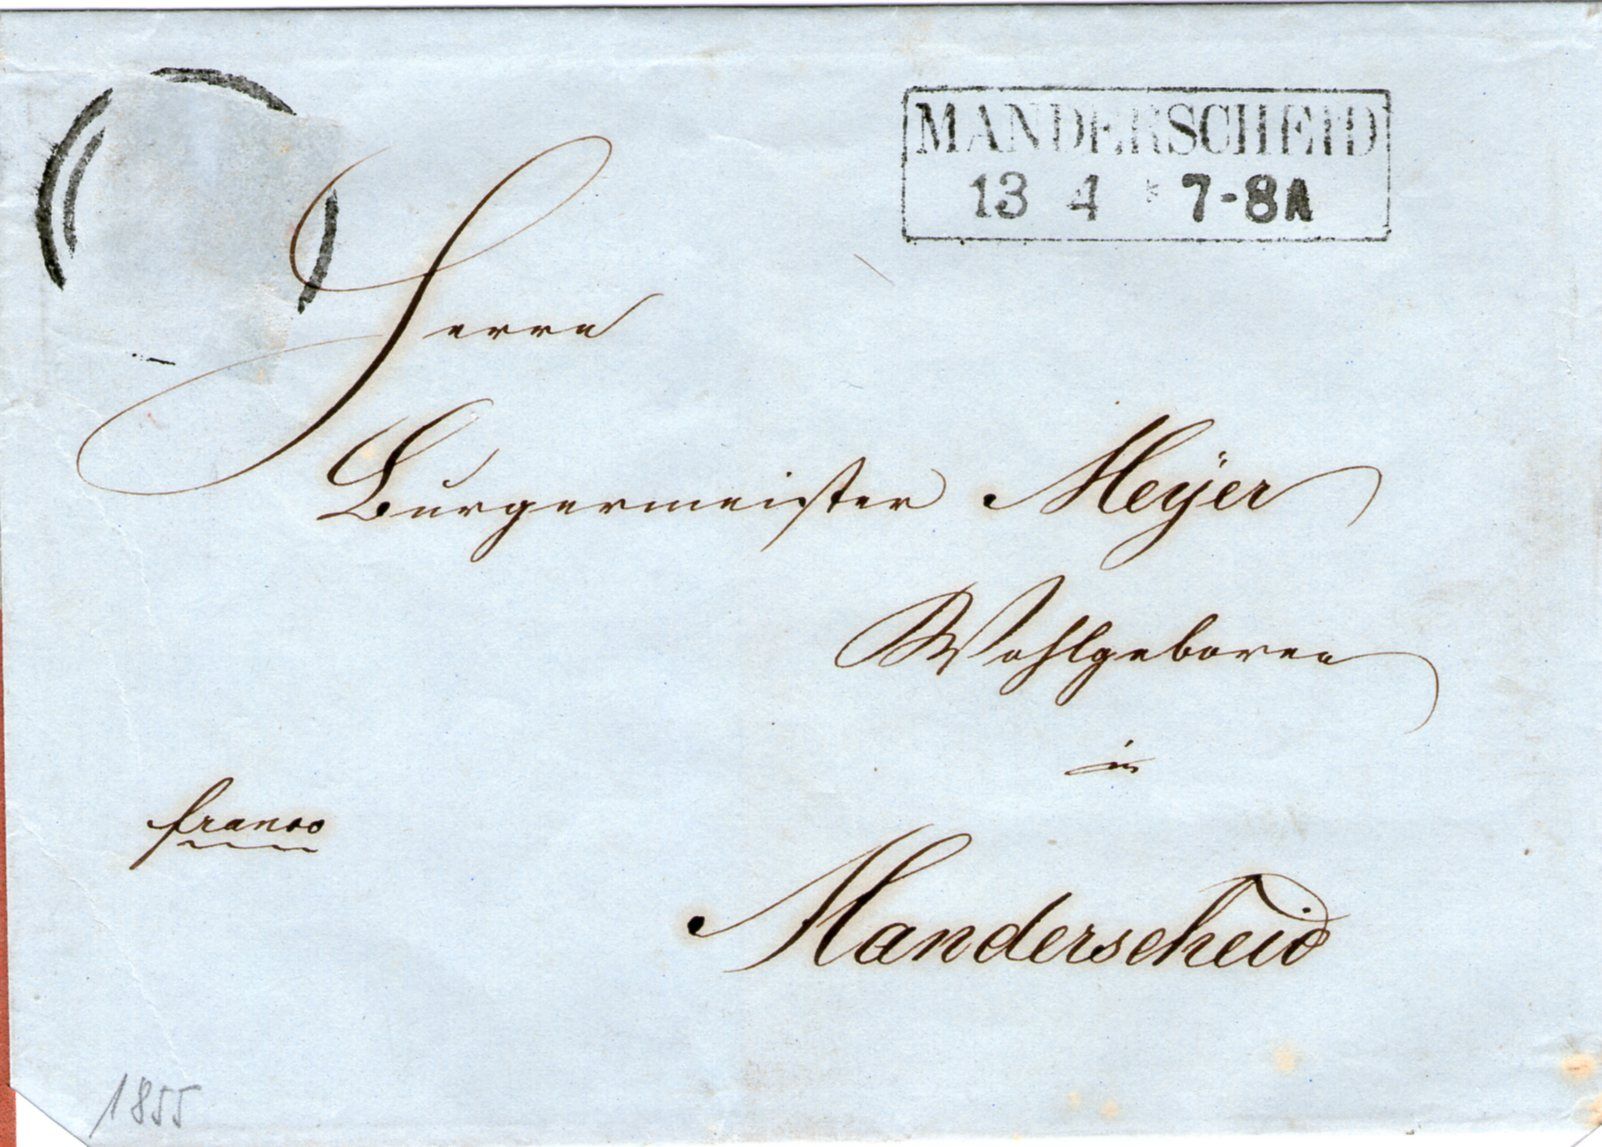 MANDERSCHEID
13 4 * 7-8A
Herrn
Bürgermeister Meÿer
Wohlgeboren
in
franco
Manderscheid
1855